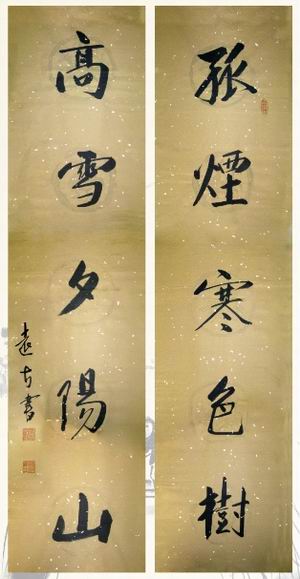 孤煙寒色樹
高雪夕陽山